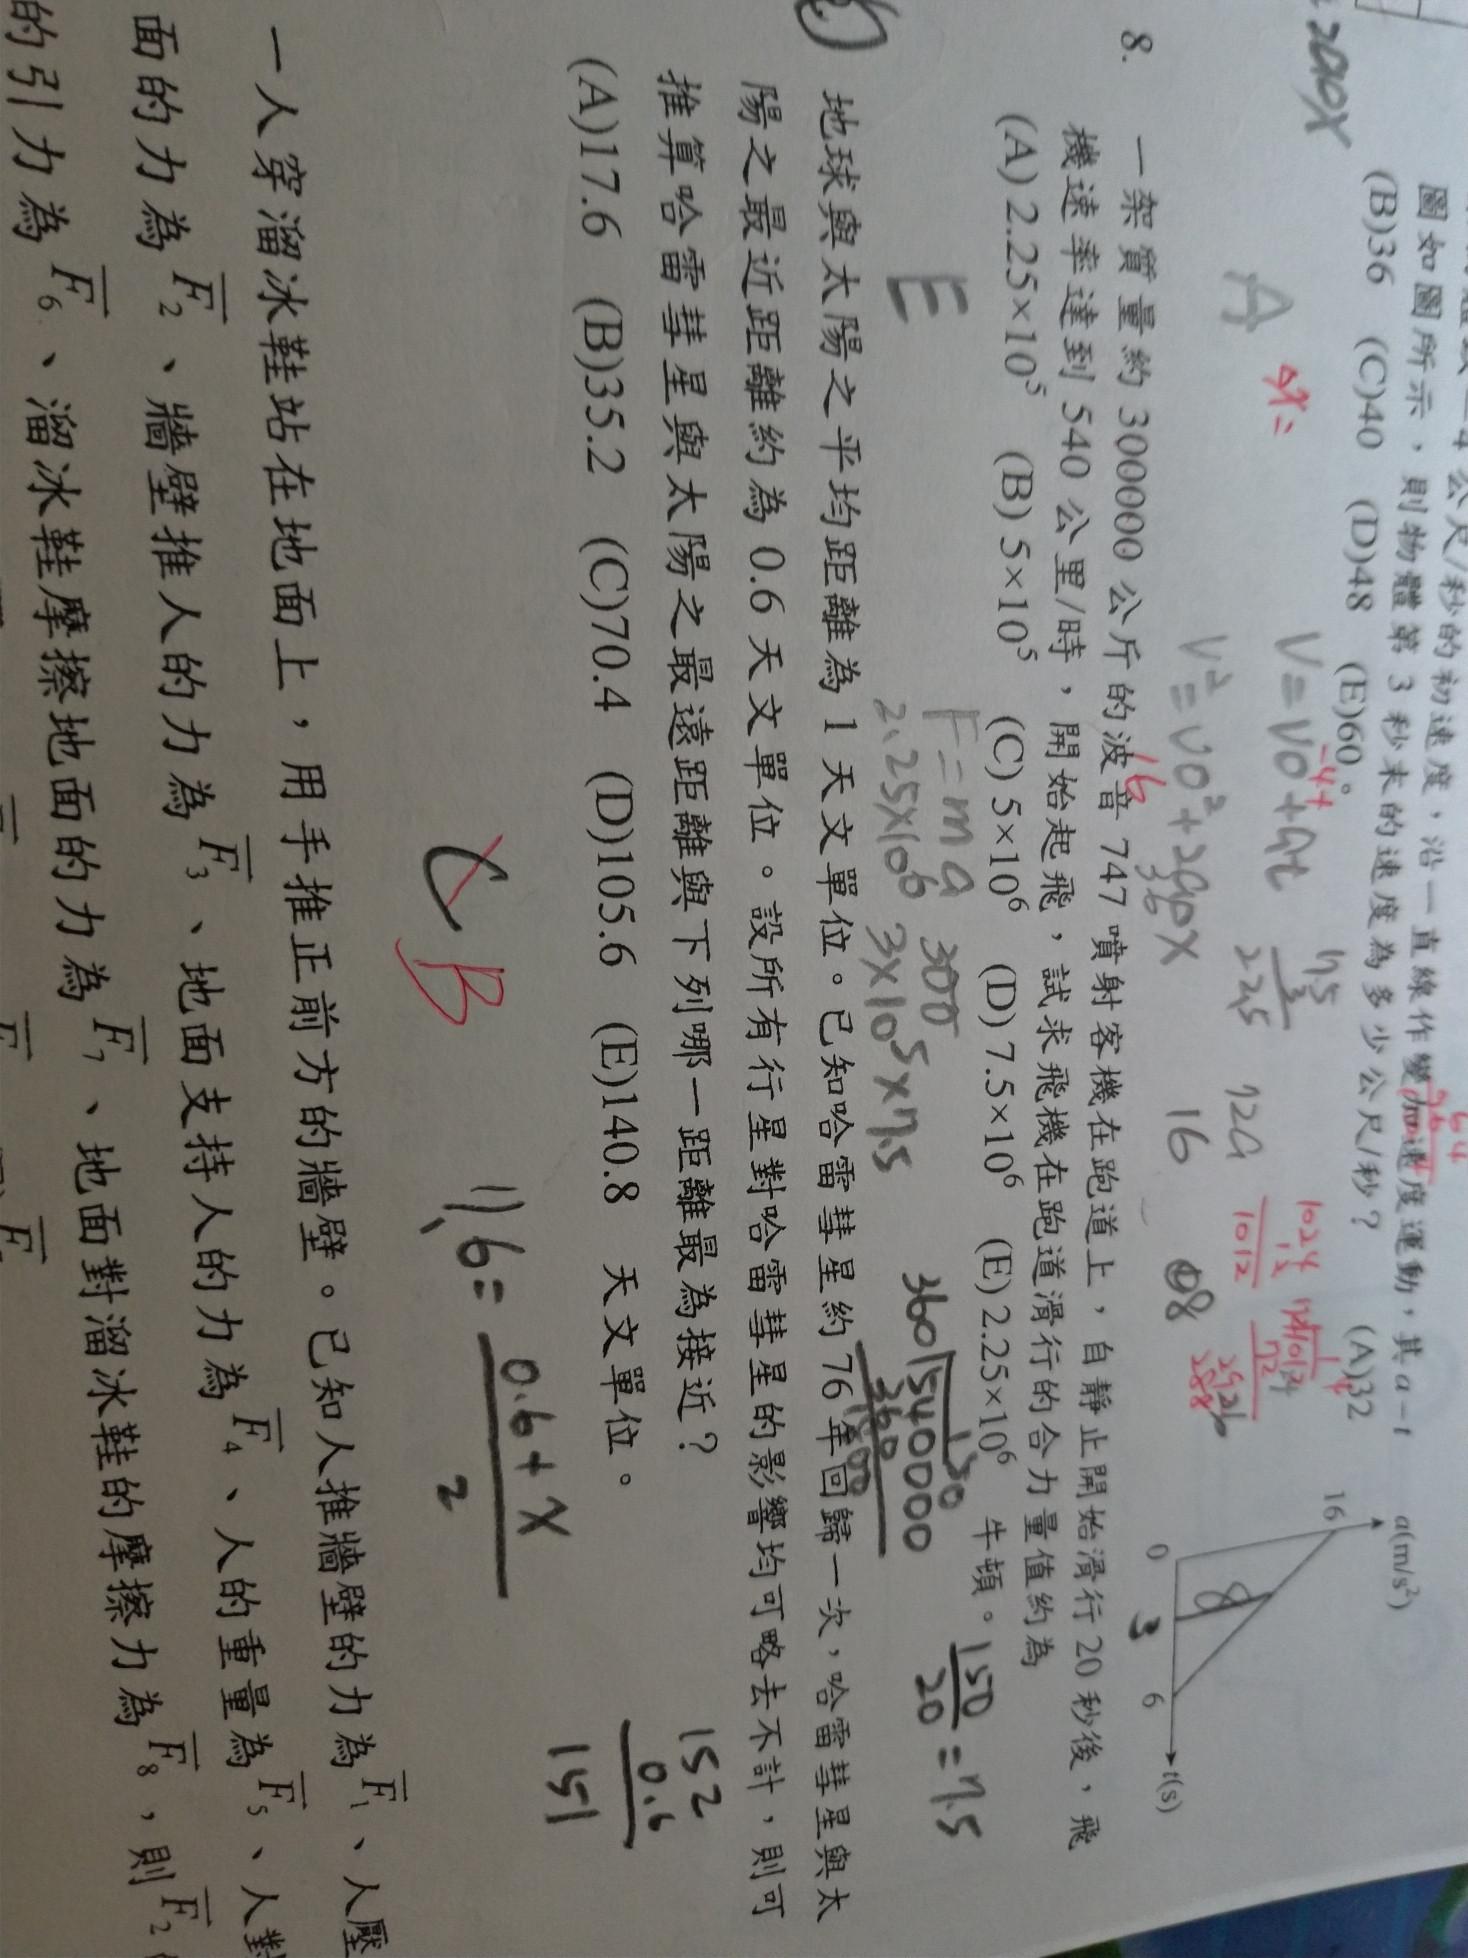 公尺/秒的初速度，沿一直線作變加速度運動，其 a－t
圖如圖所示，則物體第 3 秒末的速度為多少公尺/秒？ (A)32
(B)36 (C)40 (D)48 (E)60。
a(m/s²)
16
0
8
3
6
t(s)
200X
A
V=V0+at
-4+
7.5
3
22.5
12a
1024
12
1012
16
8. 一架質量約 300000 公斤的波音 747 噴射客機在跑道上，自靜止開始滑行 20 秒後，飛
機速率達到 540 公里/時，開始起飛，試求飛機在跑道滑行的合力量值約為
(A) 2.25×10⁵ (B) 5×10⁵ (C) 5×10⁶ (D) 7.5×10⁶ (E) 2.25×10⁶ 牛頓。
E
F=ma
300
2.25×10⁶
3×10⁵×7.5
150
360 540000
360
150/20=7.5
地球與太陽之平均距離為 1 天文單位。已知哈雷彗星約 76 年回歸一次，哈雷彗星與太
陽之最近距離約為 0.6 天文單位。設所有行星對哈雷彗星的影響均可略去不計，則可
推算哈雷彗星與太陽之最遠距離與下列哪一距離最為接近？
(A)17.6 (B)35.2 (C)70.4 (D)105.6 (E)140.8 天文單位。
C B
152
0.6
151
0.6+x
2
一人穿溜冰鞋站在地面上，用手推正前方的牆壁。已知人推牆壁的力為 F₁、人壓
面的力為 F₂、牆壁推人的力為 F₃、地面支持人的力為 F₄、人的重量為 F₅、人對
的引力為 F₆、溜冰鞋摩擦地面的力為 F₇、地面對溜冰鞋的摩擦力為 F₈，則 F₂